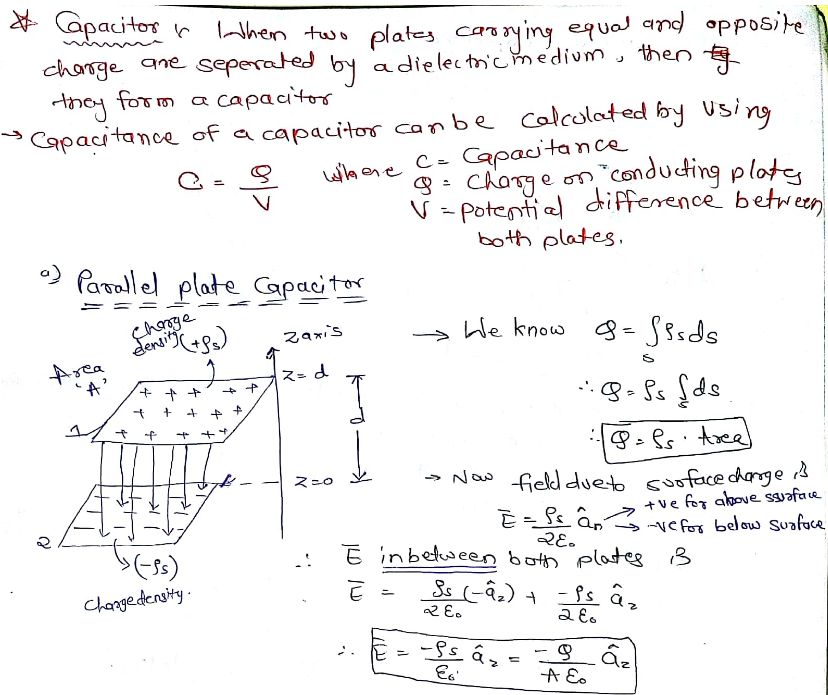 * Capacitor :- When two plates carrying equal and opposite
charge are seperated by a dielectric medium, then
they form a capacitor
→ Capacitance of a capacitor can be calculated by using
C = Q/V where C = Capacitance
Q = Charge on conducting plates
V = potential difference between
both plates.
a) Parallel plate Capacitor
Charge
density (+ρs)
z axis
Area
'A'
z = d
1
d
z=0
2
(-ρs)
Charge density.
→ We know Q = ∫s ρs ds
∴ Q = ρs ∫s ds
∴ Q = ρs . Area
→ Now field due to surface charge is
Ē = ρs/2ε₀ ân → +ve for above surface
→ -ve for below surface
∴ Ē in between both plates is
Ē = ρs/2ε₀ (-âz) + -ρs/2ε₀ âz
∴ Ē = -ρs/ε₀ âz = -Q/Aε₀ âz